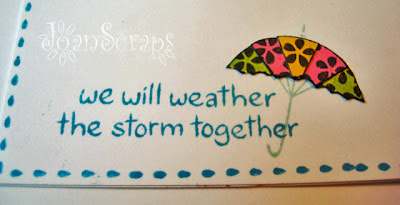 JoanScraps
we will weather
the storm together